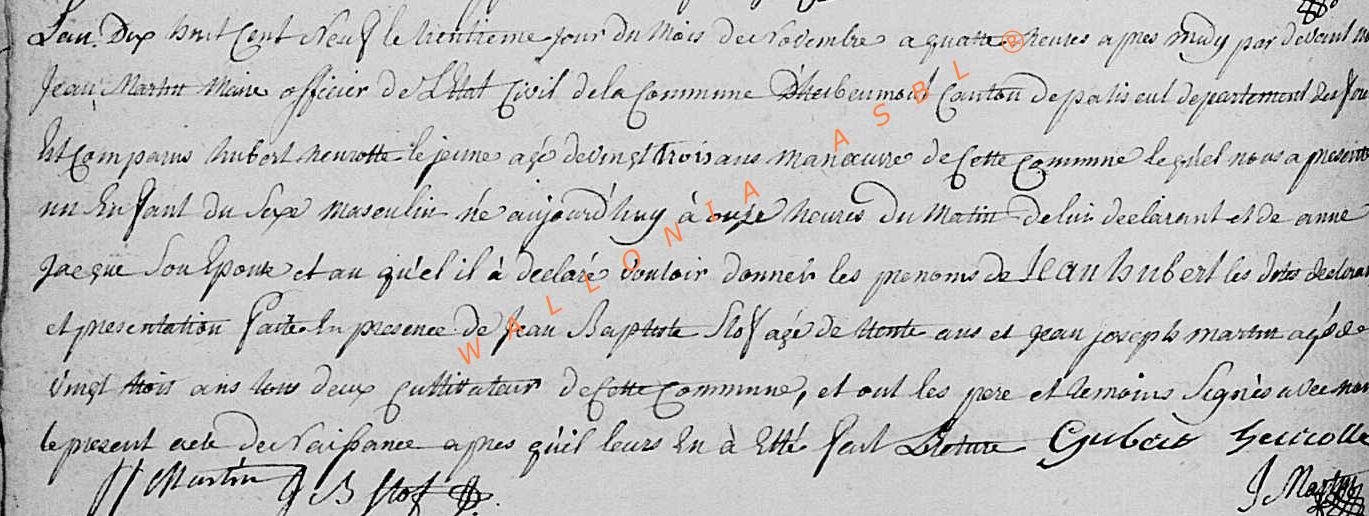 L'an Dix huit Cent Neuf le trentieme jour du Mois de Novembre a quatre heures apres midy par devant
Jean Martin Maire officier de L'Etat Civil de la Commune D'herbeumont Canton de paliseul departement des
Est Comparus hubert heurotte le jeune agé de vingt trois ans manœuvre de Cette Commune lequel nous a presenté
un Enfant du Sexe Masculin né aujourd'huy à onze heures du Matin de lui declarant et de anne
Jacque Son Epouse et au qu'el il à declaré Vouloir donner les prenoms de Jean hubert les dites
et presentation Faite En presence de Jean Baptiste Stof agé de trente ans et Jean joseph martin agé de
vingt trois ans tous deux Cultivateur de Cette Commune, et ont les pere et temoins Signés avec nous
le present acte de Naissance apres qu'il leurs En à Etté fait Lecture
JJ Martin J B Stof J Martin
WALLONIA ASBL ®